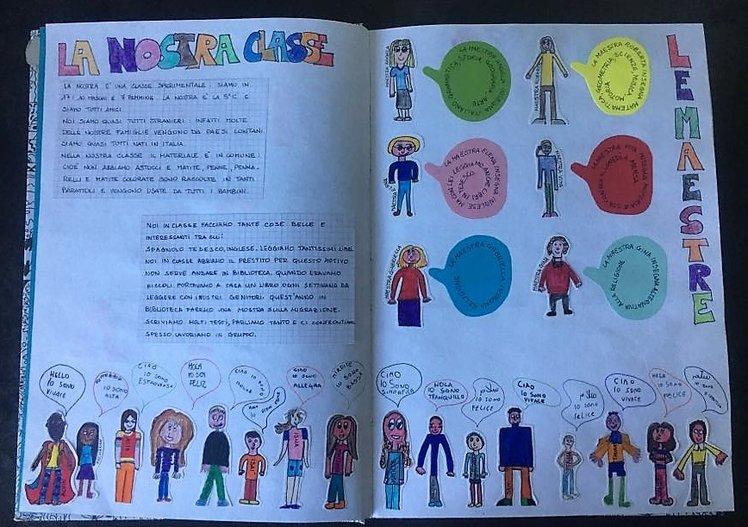 LA NOSTRA CLASSE
LA NOSTRA E' UNA CLASSE SPERIMENTALE: SIAMO IN
17: 10 MASCHI E 7 FEMMINE. LA NOSTRA E' LA 5°C E
SIAMO TUTTI AMICI.
NOI SIAMO QUASI TUTTI STRANIERI: INFATTI MOLTE
DELLE NOSTRE FAMIGLIE VENGONO DA PAESI LONTANI.
SIAMO QUASI TUTTI NATI IN ITALIA.
NELLA NOSTRA CLASSE IL MATERIALE E' IN COMUNE:
CIOE' NON ABBIAMO ASTUCCI E MATITE, PENNE, PENNA-
RELLI E MATITE COLORATE SONO RACCOLTE IN TANTI
BARATTOLI E VENGONO USATE DA TUTTI I BAMBINI.
NOI IN CLASSE FACCIAMO TANTE COSE BELLE E
INTERESSANTI TRA CUI:
SPAGNOLO TEDESCO, INGLESE. LEGGIAMO TANTISSIMI LIBRI
NOI IN CLASSE ABBIAMO IL PRESTITO PER QUESTO MOTIVO
NON SERVE ANDARE IN BIBLIOTECA. QUANDO ERAVAMO
PICCOLI PORTAVAMO A CASA UN LIBRO OGNI SETTIMANA DA
LEGGERE CON I NOSTRI GENITORI. QUEST'ANNO IN
BIBLIOTECA FAREMO UNA MOSTRA SULLA MIGRAZIONE.
SCRIVIAMO MOLTI TESTI, PARLIAMO TANTO E CI CONFRONTIAMO
SPESSO LAVORIAMO IN GRUPPO.
HELLO
IO SONO
IO SONO
ALTA
CIAO
IO SONO
HOLA
IO SONO
FELIZ
CIAO IO SONO
CIAO
IO SONO
ALLEGRA
IO SONO
LE MAESTRE
LA MAESTRA
ITALIANO, GEOGRAFIA, STORIA, ARTE
LA MAESTRA ROBERTA INSEGNA MATEMATICA, GEOMETRIA, SCIENZE, MUSICA, MOTORIA
LA MAESTRA ELENA INSEGNA INGLESE
LA MAESTRA RITA INSEGNA
LA MAESTRA GABRIELLA
LA MAESTRA GINA INSEGNA ALTERNATIVA ALLA RELIGIONE
CIAO
IO SONO
SIMPATICA
HOLA
IO SONO
TRANQUILLO
IO SONO
FELICE
CIAO
IO SONO
VIVACE
IO SONO
FELICE
CIAO
IO SONO
VIVACE
HOLA
IO SONO
FELICE
IO SONO